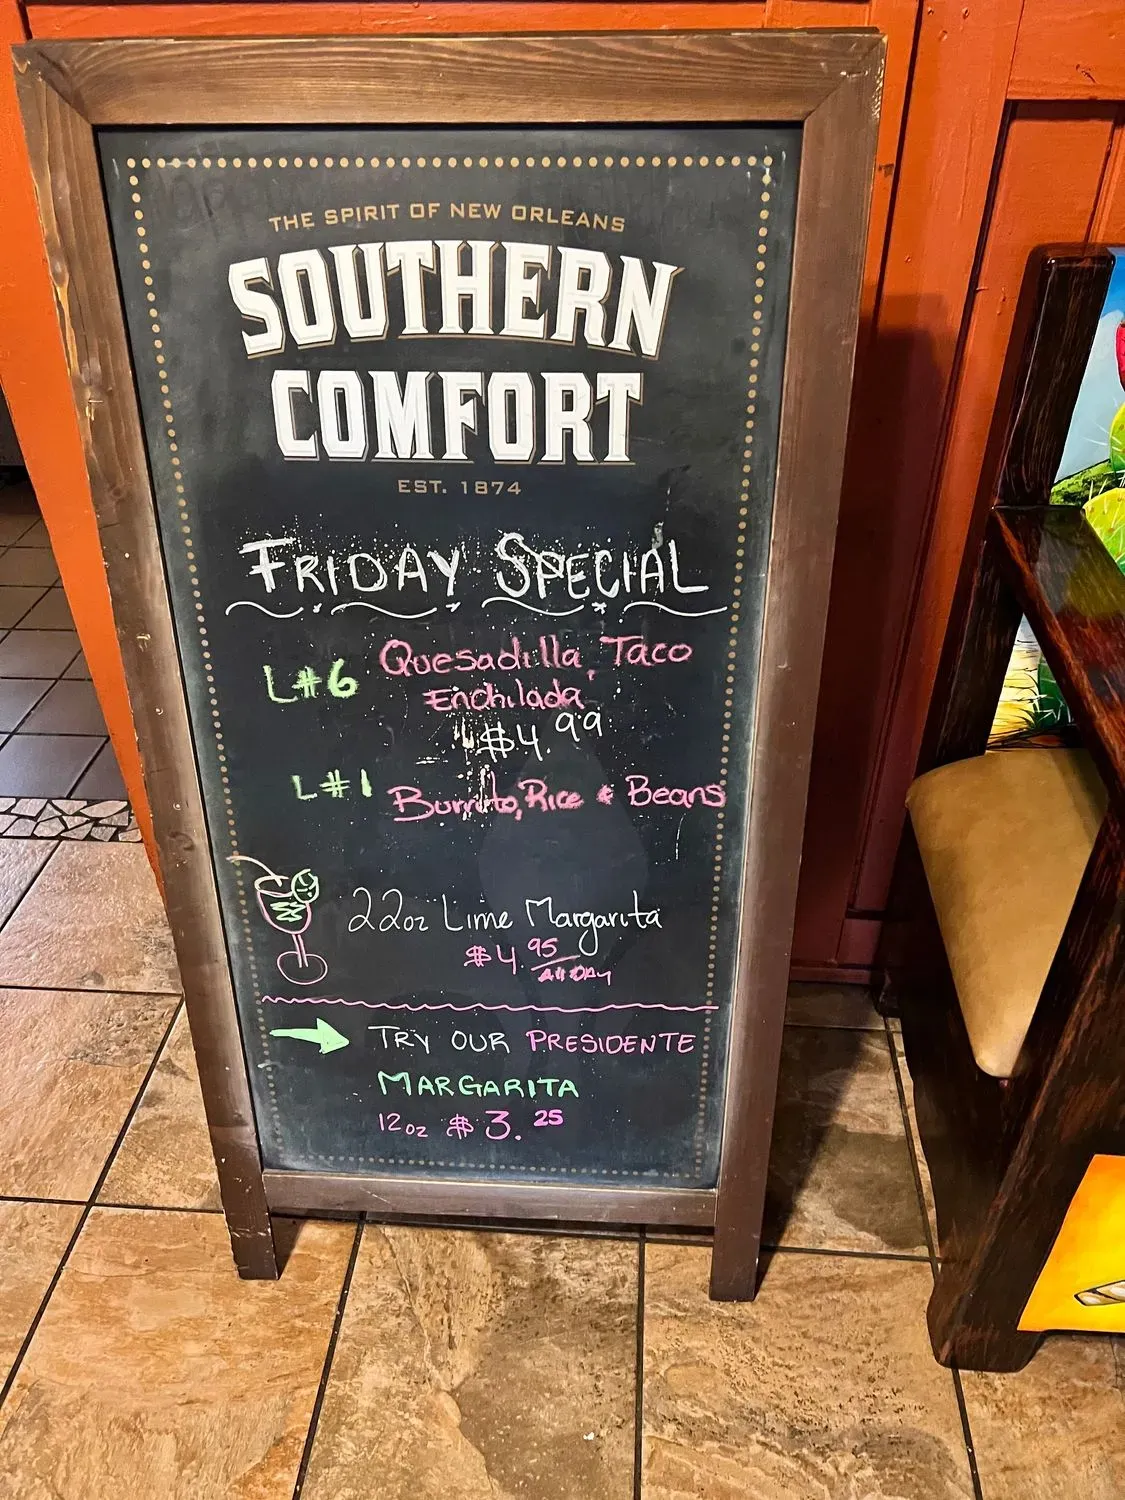 THE SPIRIT OF NEW ORLEANS
SOUTHERN
COMFORT
EST. 1874
FRIDAY SPECIAL
L#6 Quesadilla, Taco
Enchilada
$4.99
L#1 Burrito, Rice & Beans
22oz Lime Margarita
$4.95 All DAY
TRY OUR PRESIDENTE
MARGARITA
12oz $3.25